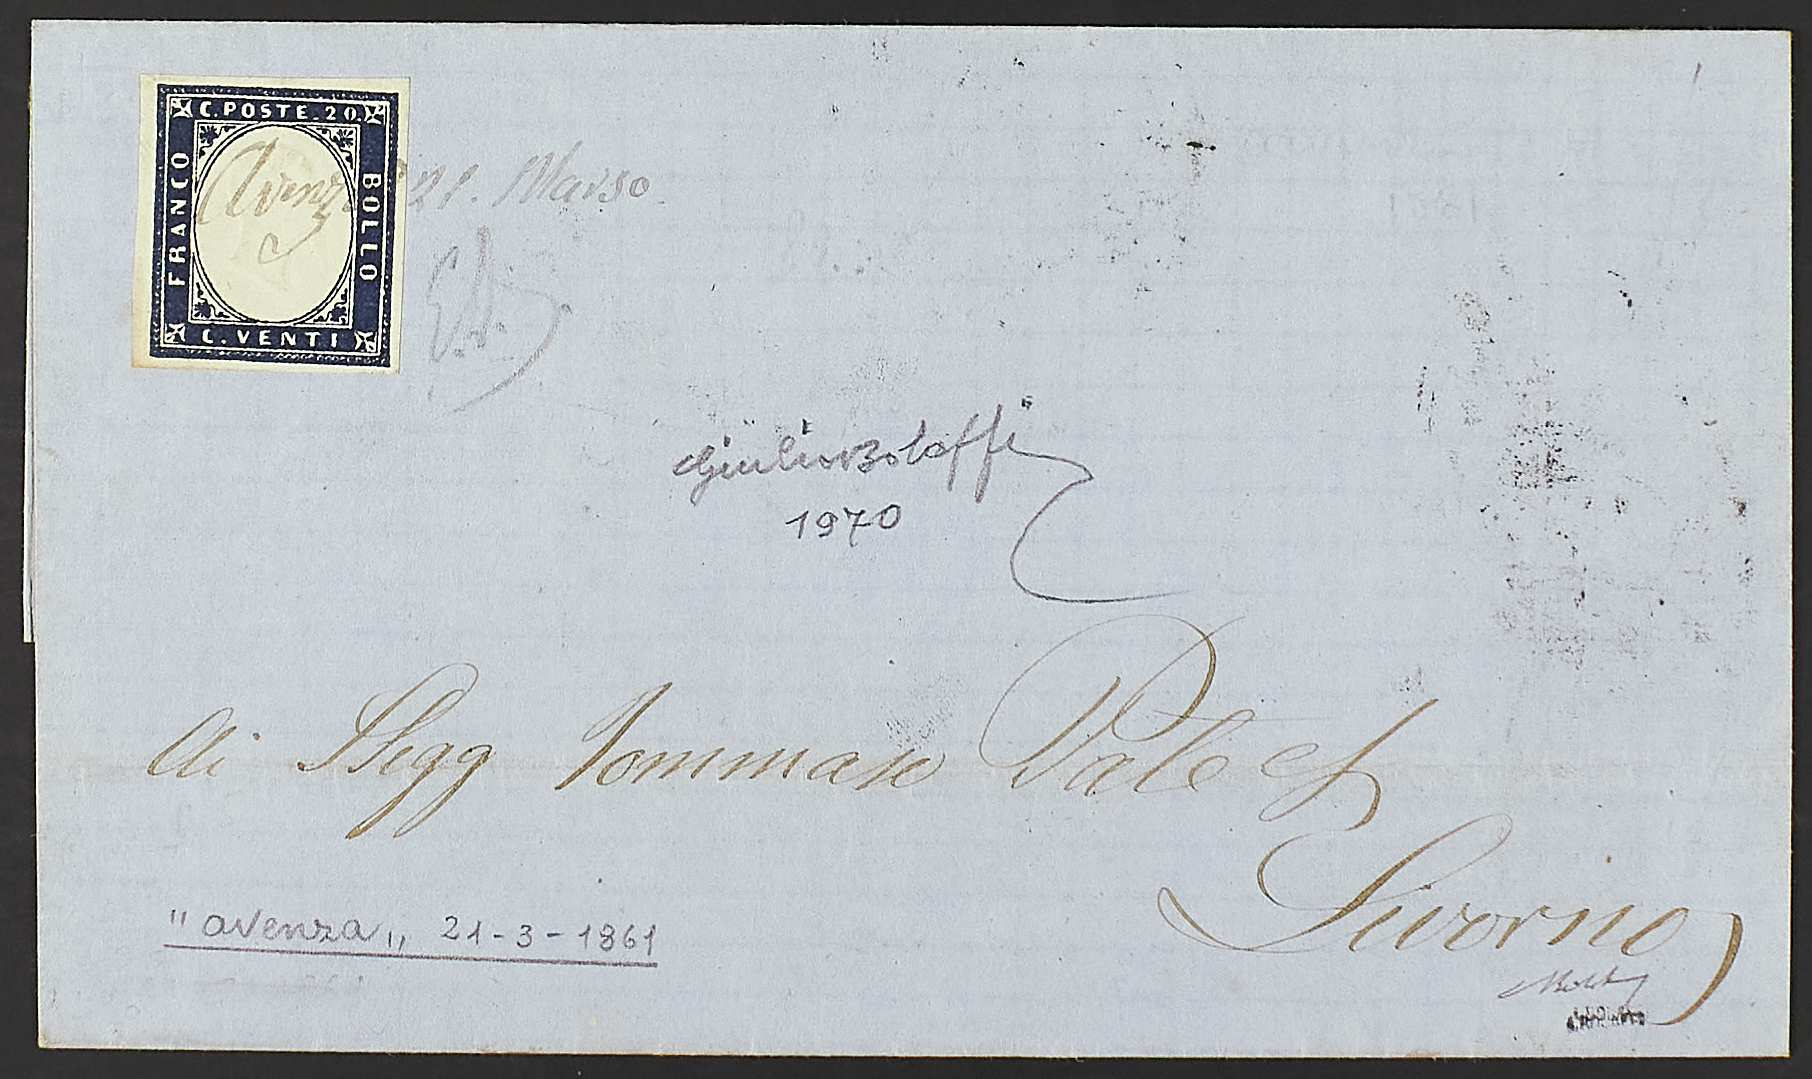 C. POSTE. 20.
FRANCO
BOLLO
C. VENTI
Avenza 21. Marso
GiulioBolaffi
1970
Ai SSegg Tommaso Pate e f
Livorno
"avenza„ 21-3-1861